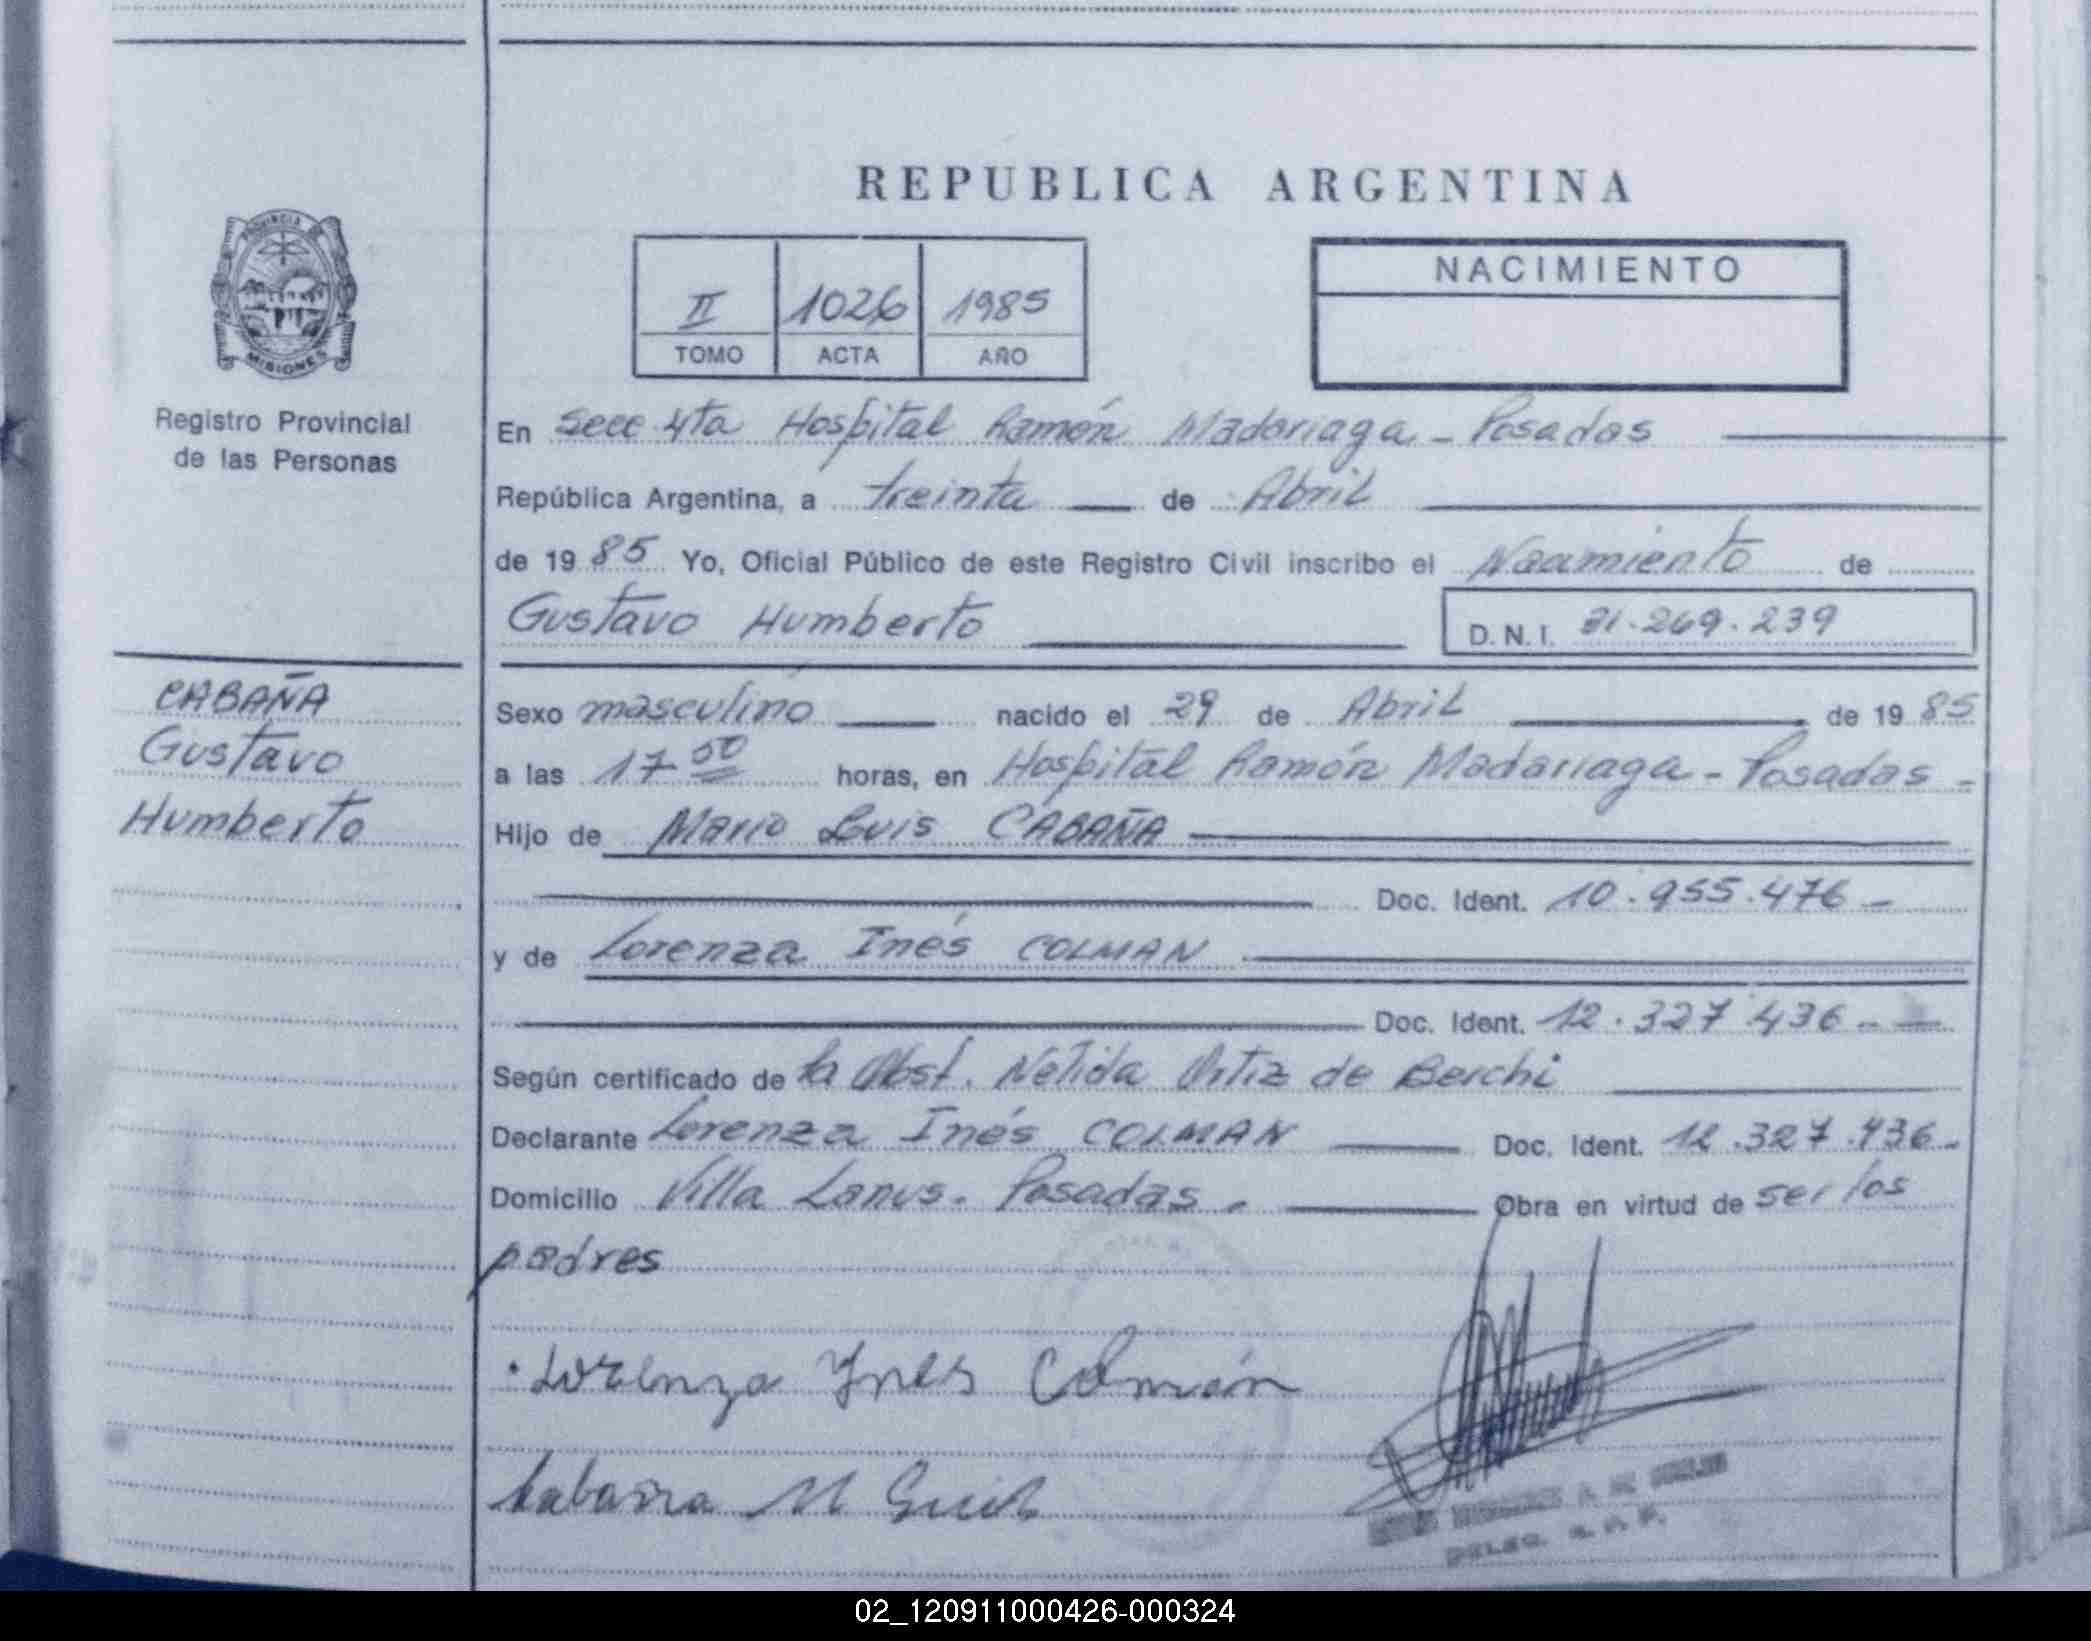 REPUBLICA ARGENTINA
PROVINCIA DE
MISIONES
Registro Provincial
de las Personas
II 1026 1985
TOMO ACTA AÑO
NACIMIENTO
En Secc 4ta Hospital Ramón Madariaga - Posadas
República Argentina, a treinta de Abril
de 1985 Yo, Oficial Público de este Registro Civil inscribo el Nacimiento de
Gustavo Humberto D.N.I. 31.269.239
CABAÑA
Gustavo
Humberto
Sexo masculino nacido el 29 de Abril de 1985
a las 17 50 horas, en Hospital Ramón Madariaga - Posadas -
Hijo de Mario Luis CABAÑA
Doc. Ident. 10.955.476 -
y de Lorenza Inés COLMAN
Doc. Ident. 12.327.436 - -
Según certificado de la Obst. Nélida Ortiz de Berchi
Declarante Lorenza Inés COLMAN Doc. Ident. 12.327.436 -
Domicilio Villa Lanus - Posadas - Obra en virtud de ser los
padres
Lorenza Ynes Colmán
Cabaña M Luis
02_120911000426-000324